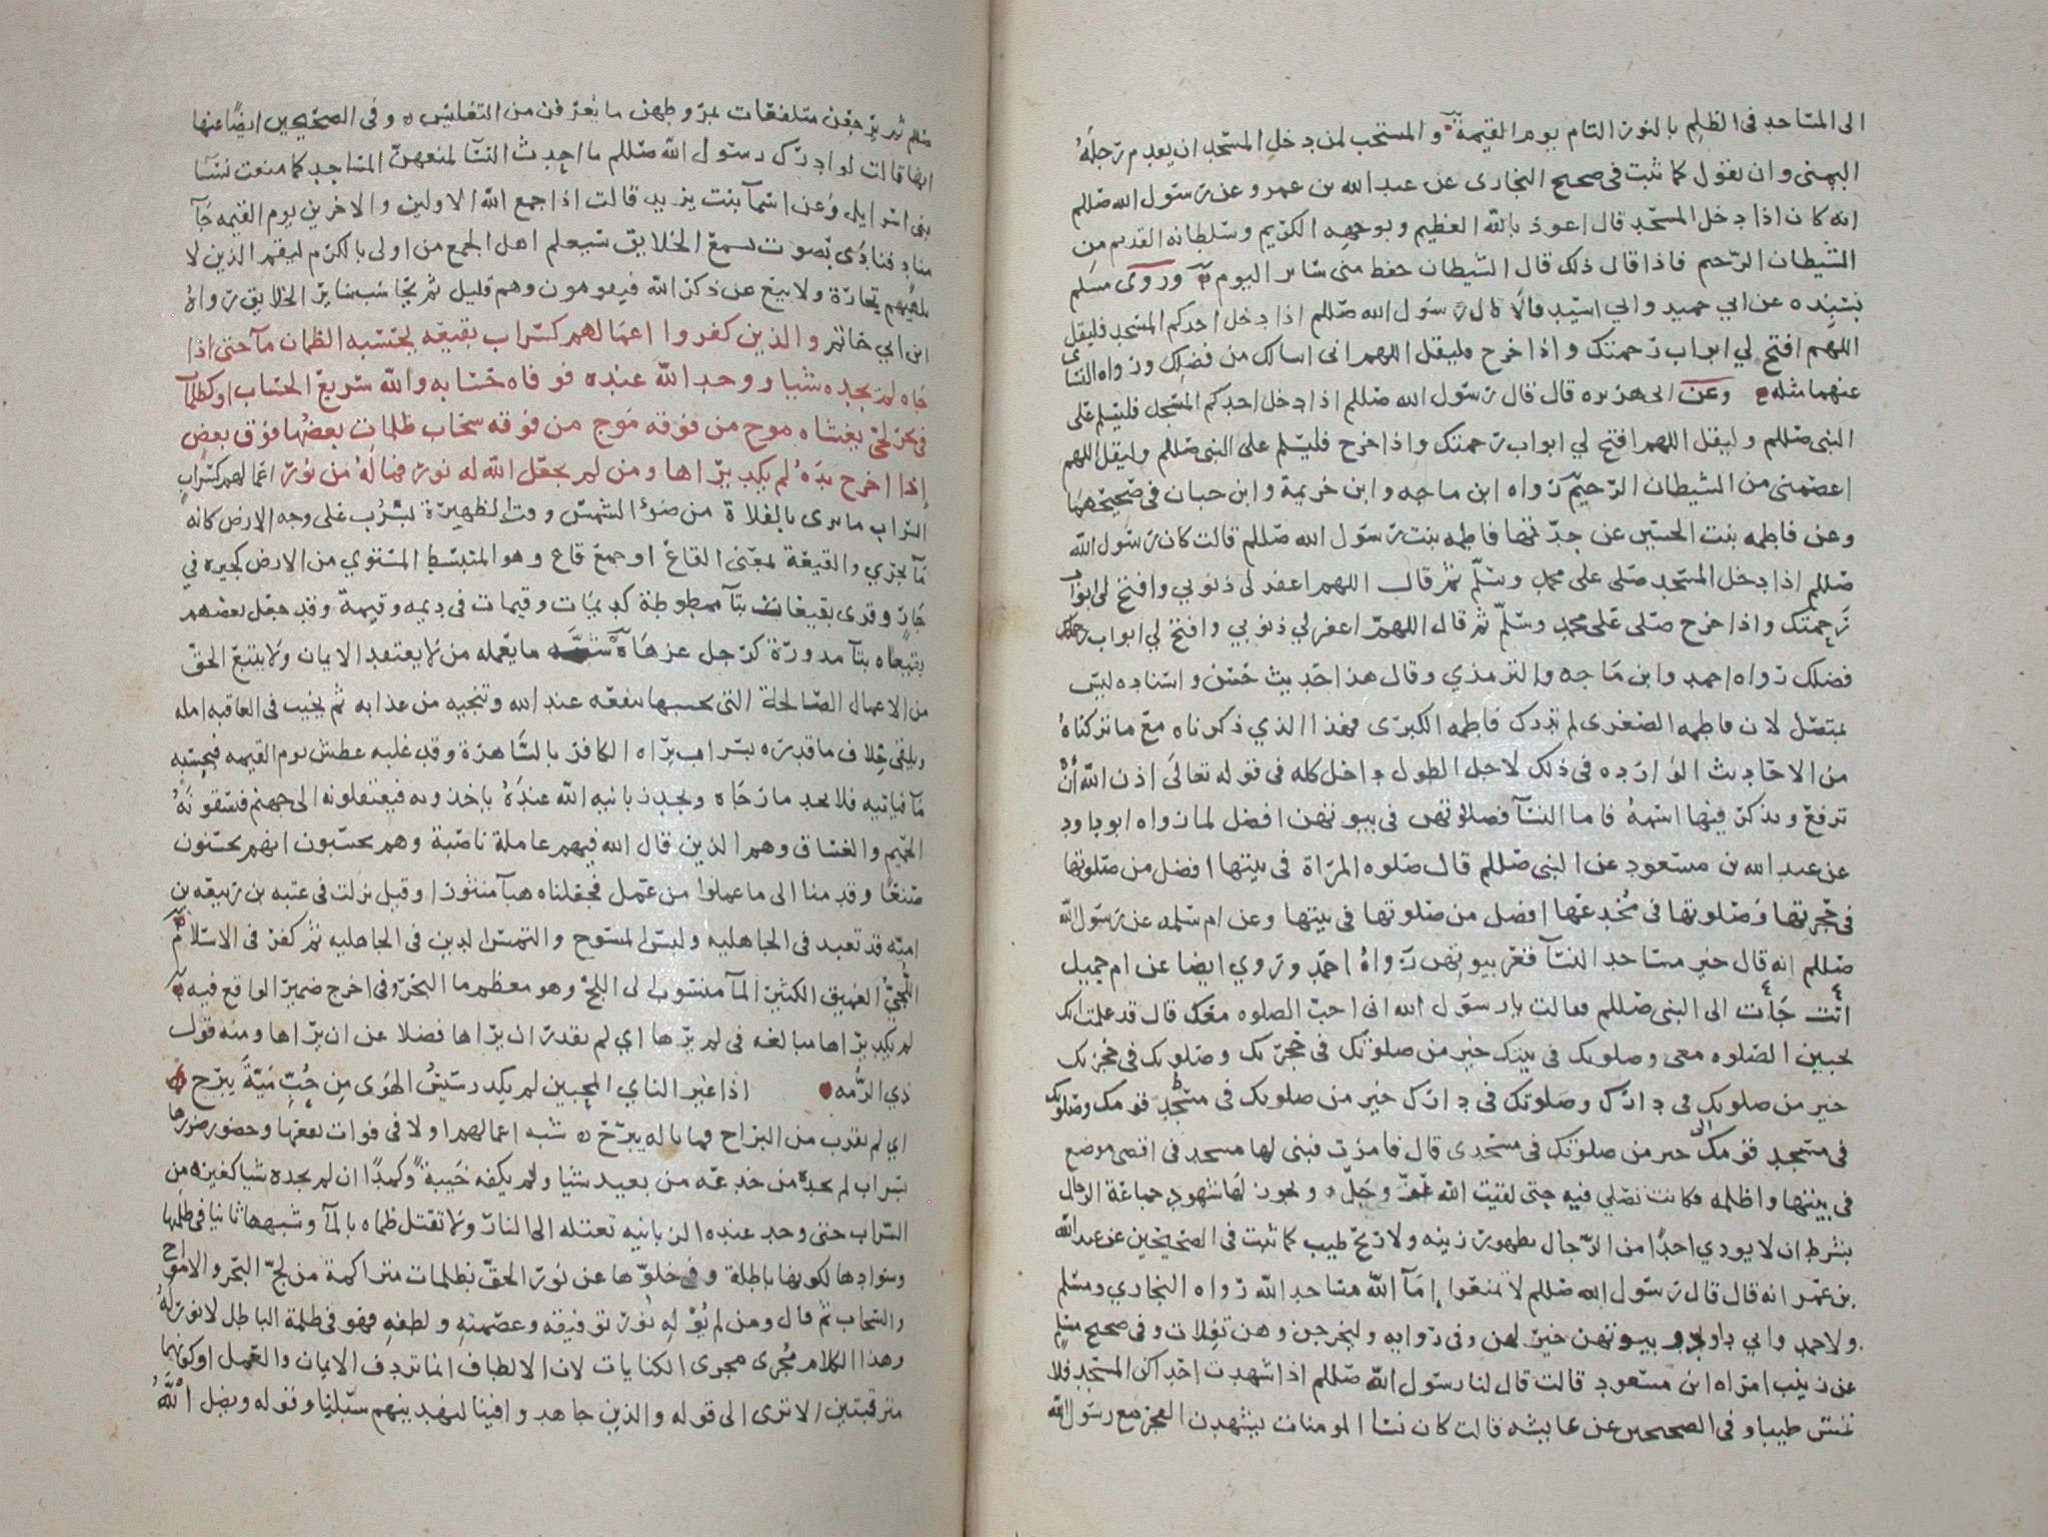 الى المساجد فى الظلم بالنور التام يوم القيمة والمستحب لمن دخل المسجد ان يقدم رجله
اليمنى وان يقول كما ثبت فى صحيح البخارى عن عبد الله بن عمرو عن رسول الله صللم
انه كان اذا دخل المسجد قال اعوذ بالله العظيم وبوجهه الكريم وسلطانه القديم من
الشيطان الرجيم فاذا قال ذلك قال الشيطان حفظ منى سائر اليوم وروى مسلم
بسنده عن ابي حميد وابي اسيد قالا قال رسول الله صللم اذا دخل احدكم المسجد فليقل
اللهم افتح لي ابواب رحمتك واذا خرج فليقل اللهم انى اسالك من فضلك ورواه النسائى
عنهما مثله وعن ابى هريره قال قال رسول الله صللم اذا دخل احدكم المسجد فليسلم على
النبى صللم وليقل اللهم افتح لي ابواب رحمتك واذا خرج فليسلم على النبى صللم وليقل اللهم
اعصمنى من الشيطان الرجيم رواه ابن ماجه وابن خريمة وابن حبان فى صحيحهما
وعن فاطمه بنت الحسين عن جدتها فاطمه بنت رسول الله صللم قالت كان رسول الله
صللم اذا دخل المسجد صلى على محمد وسلم ثم قال اللهم اغفر لى ذنوبي وافتح لى ابواب
رحمتك واذا خرج صلى على محمد وسلم ثم قال اللهم اغفر لي ذنوبي وافتح لي ابواب
فضلك رواه احمد وابن ماجه والترمذي وقال هذا حديث حسن واسناده ليس
بمتصل لان فاطمه الصغرى لم تدرك فاطمه الكبرى فهذا الذي ذكرناه مع ما تركناه
من الاحاديث الوارده فى ذلك لاجل الطول داخل كله فى قوله تعالى اذن الله ان
ترفع ويذكر فيها اسمه فاما النسآ فصلاتهن فى بيوتهن افضل لما رواه ابو داود
عن عبد الله بن مسعود عن النبى صللم قال صلوه المراة فى بيتها افضل من صلوتها
فى حجرتها وصلوتها فى مخدعها افضل من صلوتها فى بيتها وعن ام سلمه عن رسول الله
صللم انه قال خير مساجد النسآ قعر بيوتهن رواه احمد وروي ايضا عن ام جميل
انت جات الى النبى صللم فقالت يا رسول الله انى احب الصلوه معك قال قد علمت انك
تحبين الصلوه معى وصلوتك فى بيتك خير من صلوتك فى حجرتك وصلوتك فى حجرتك
خير من صلوتك فى دارك وصلوتك فى دارك خير من صلوتك فى مسجد قومك وصلوتك
فى مسجد قومك خير من صلوتك فى مسجدى قال فامرت فبنى لها مسجد فى اقصى موضع
فى بيتها واظلمه فكانت تصلي فيه حتى لقيت الله عز وجل ويجوز لها شهود جماعة الرجال
بشرط ان لا يوذي احدا من الرجال بظهور زينه ولا ريح طيب كما ثبت فى الصحيحين عن عبد الله
بن عمر انه قال قال رسول الله صللم لا تمنعوا امآ الله مساجد الله رواه البخاري ومسلم
ولاحمد وابي داود وبيوتهن خير لهن وفى روايه وليخرجن وهن تفلات وفى صحيح مسلم
عن زينب امراه ابن مسعود قالت قال لنا رسول الله صللم اذا شهدت احداكن المسجد فلا
تمس طيبا وفى الصحيحين عن عايشه قالت كان نسا المومنات يشهدن الفجر مع رسول الله
صللم ثم يرجعن متلفعات بمروطهن ما يعرفن من التغليس وفى الصحيحين ايضا عنها
انها قالت لو ادرك رسول الله صللم ما احدث النسآ لمنعهن المساجد كما منعت نسآ
بنى اسرايل وعن اسمآ بنت يزيد قالت اذا جمع الله الاولين والاخرين يوم القيمه جآ
مناد فنادى بصوت يسمع الخلايق سيعلم اهل الجمع من اولى بالكرم ليقم الذين لا
تلهيهم تجارة ولا بيع عن ذكر الله فيقومون وهم قليل ثم يحاسب ساير الخلايق رواه
ابن ابي حاتم والذين كفروا اعمالهم كسراب بقيعه يحسبه الظمان مآ حتى اذا
جاه لم يجده شيا ووجد الله عنده فوفاه حسابه والله سريع الحساب او كظلمات
فى بحر لجى يغشاه موج من فوقه موج من فوقه سحاب ظلمات بعضها فوق بعض
اذا اخرج يده لم يكد يراها ومن لم يجعل الله له نورا فما له من نور اعمالهم كسراب
السراب ما يرى بالفلاة من ضوء الشمس وقت الظهيرة يسرب على وجه الارض كانه
مآ يجري والقيعة بمعنى القاع او جمع قاع وهو المنبسط المستوي من الارض كجيره فى
جار وقرى بقيعات بتآ ممطوطة كديمات وقيمات فى ديمه وقيمة وقد جعل بعضهم
بقيعاه بتآ مدورة كرجل عزهاة شبه ما يعمله من لا يعتقد الايمان ولا يتبع الحق
من الاعمال الصالحة التى يحسبها تنفعه عند الله وتنجيه من عذابه ثم يخيب فى العاقبه امله
ويلقى خلاف ما قدره بسراب يراه الكافر بالساهرة وقد غلبه عطش يوم القيمه فيحسبه
مآ فياتيه فلا يجد ما رجاه ويجد زبانيه الله عنده ياخذونه فيعتلونه الى جهنم فيسقونه
الحميم والغساق وهم الذين قال الله فيهم عاملة ناصبة وهم يحسبون انهم يحسنون
صنعا وقدمنا الى ما عملوا من عمل فجعلناه هبآ منثورا وقيل نزلت فى عتبه بن ربيعه بن
اميه قد تعبد فى الجاهليه ولبس المسوح والتمس الدين فى الجاهليه ثم كفر فى الاسلام
اللجى العميق الكثير المآ منسوب الى اللج وهو معظم ما البحر وفى اخرج ضمير الواقع فيه
لم يكد يراها مبالغه فى لم يرها اي لم يقدر ان يراها فضلا عن ان يراها ومنه قول
ذي الرمه اذا غير الناي المحبين لم يكد رسيس الهوى من حب مية يبرح
اي لم يقرب من البراح فما باله يبرح شبه اعمالهم اولا فى فوات نفعها وحضور ضررها
بسراب لم يجده من خدعه من بعيد شيا ولم يكفه خيبة وكمدا ان لم يجده شيا كغيره من
السراب حتى وجد عنده الزبانيه تعتله الى النار ولا تقتل ظماه بالمآ وشبهها ثانيا فى ظلمتها
وسوادها لكونها باطلة وفى خلوها عن نور الحق بظلمات متراكمة من لج البحر والامواج
والسحاب ثم قال ومن لم يوله نور توفيقه وعصمته ولطفه فهو فى ظلمة الباطل لا نور له
وهذا الكلام مجرى مجرى الكنايات لان الالطاف انما تردف الايمان والعمل او كونهما
مترقبتين الا ترى الى قوله والذين جاهدوا فينا لنهدينهم سبلنا وقوله ويضل الله